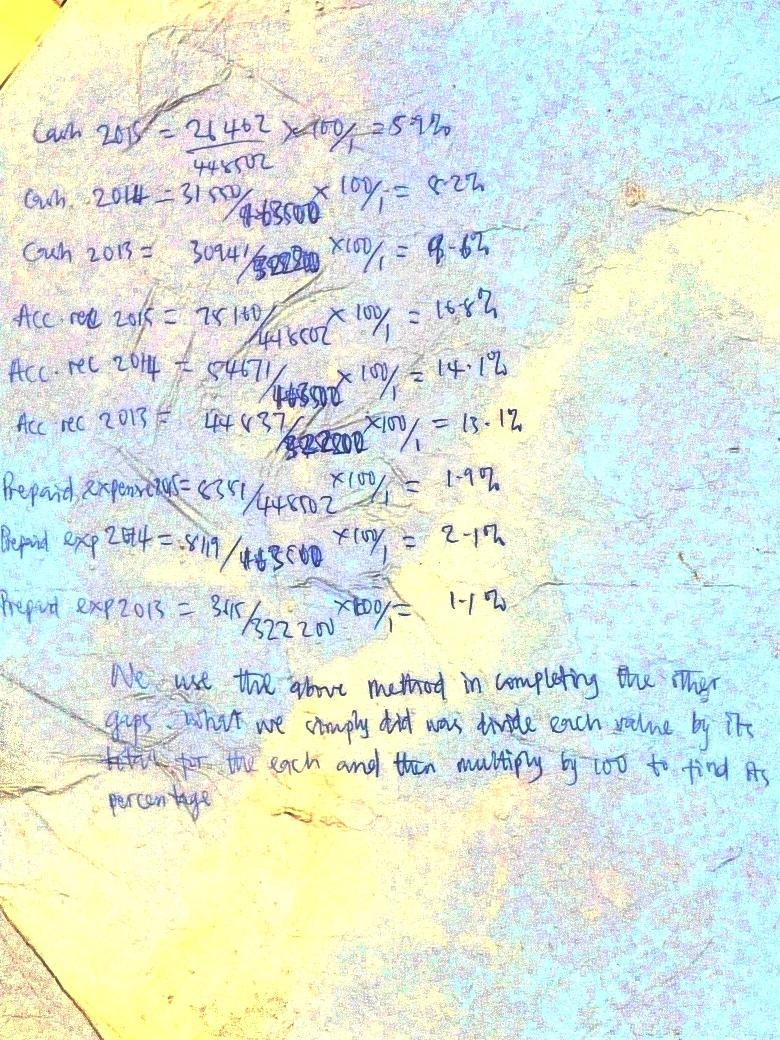 Cash 2015 = 26462/448502 × 100/1 = 5.9%
Cash 2014 = 31550/ × 100/1 = 8.2%
Cash 2013 = 30941/ × 100/1 = %
Acc. rec 2015 = 75160/448502 × 100/1 = 16.8%
Acc. rec 2014 = 54671/ × 100/1 = 14.1%
Acc rec 2013 = 44837/ × 100/1 = 13.1%
Prepaid expense = 8351/448502 × 100/1 = 1.9%
Prepaid exp 2014 = 8119/ × 100/1 = 2.1%
Prepaid exp 2013 = /322200 × 100/1 = 1.1%
We use the above method in completing the other
gaps. What we simply did was divide each value by its
total for the each and then multiply by 100 to find its
percentage